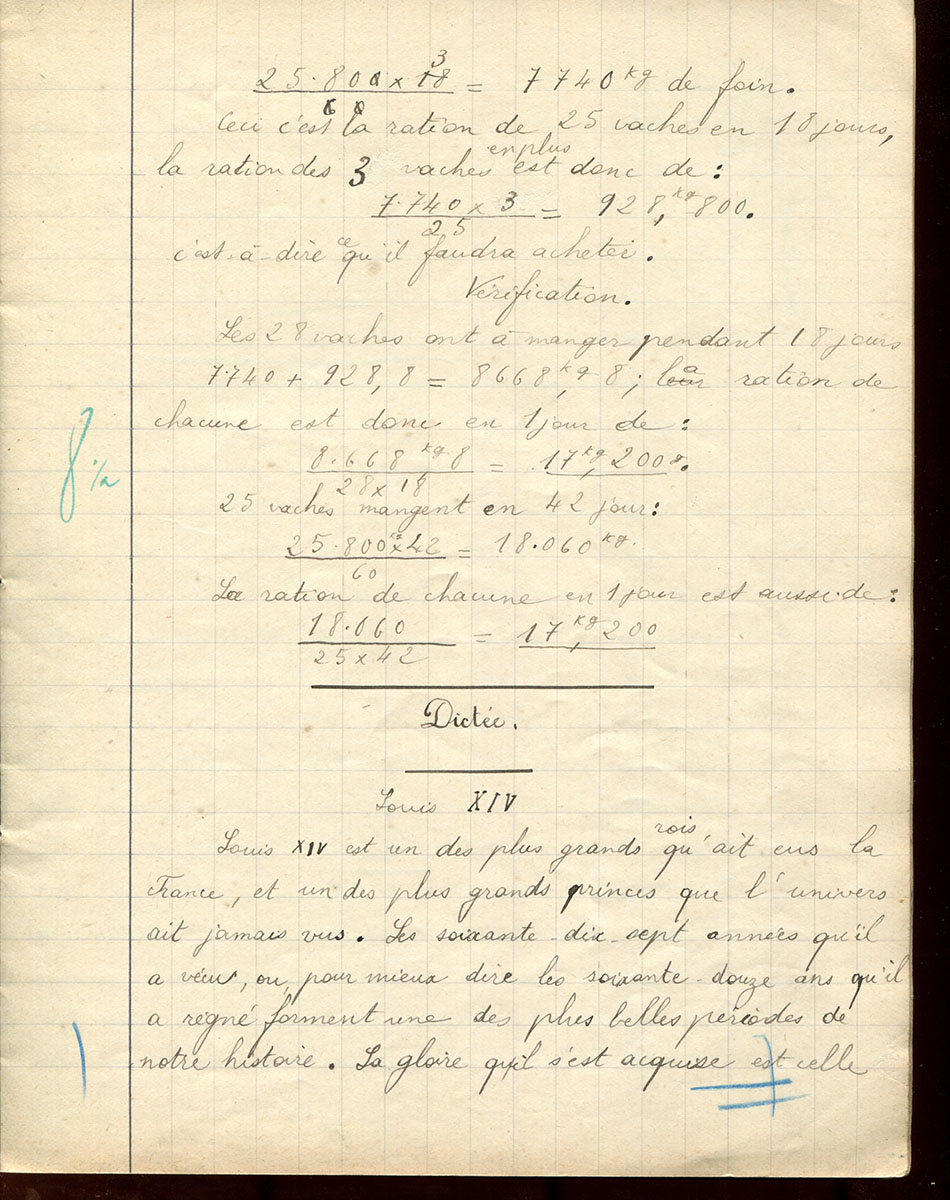 3
25.800 x 18 = 7740 kg de foin.
60
Ceci c'est la ration de 25 vaches en 18 jours,
en plus
la ration des 3 vaches est donc de :
7.740 x 3 = 928,kg 800.
25
c'est-à-dire ce qu'il faudra acheter.
Vérification.
Les 28 vaches ont à manger pendant 18 jours
7.740 + 928,8 = 8668,kg 8 ; la ration de
chacune est donc en 1 jour de :
8.668 kg 8 = 17 kg,200g.
28 x 18
8 1/2
25 vaches mangent en 42 jour :
25.800kg x 42 = 18.060 kg.
60
La ration de chacune en 1 jour est aussi de :
18.060 = 17 kg,200
25 x 42
Dictée.
Louis XIV
rois
Louis XIV est un des plus grands qu'ait eus la
France, et un des plus grands princes que l'univers
ait jamais vus. Les soixante-dix-sept années qu'il
a vécu, ou, pour mieux dire les soixante-douze ans qu'il
a régné forment une des plus belles périodes de
notre histoire. La gloire qu'il s'est acquise est celle